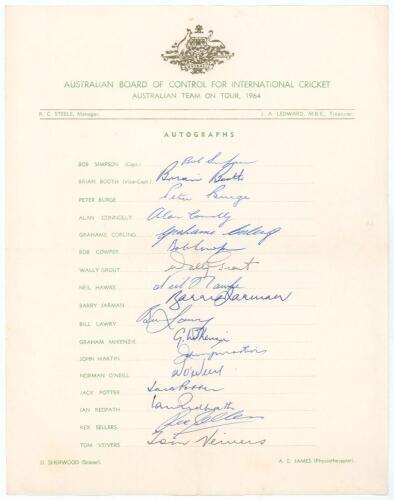 AUSTRALIAN BOARD OF CONTROL FOR INTERNATIONAL CRICKET
AUSTRALIAN TEAM ON TOUR, 1964
R. C. STEELE, Manager. J. A. LEDWARD, M.B.E., Treasurer.
AUTOGRAPHS
BOB SIMPSON (Capt.) Bob Simpson
BRIAN BOOTH (Vice-Capt.) Brian Booth
PETER BURGE Peter Burge
ALAN CONNOLLY Alan Connolly
GRAHAME CORLING Grahame Corling
BOB COWPER Bob Cowper
WALLY GROUT Wally Grout
NEIL HAWKE Neil Hawke
BARRY JARMAN Barry Jarman
BILL LAWRY Bill Lawry
GRAHAM McKENZIE G. McKenzie
JOHN MARTIN
NORMAN O'NEILL N. O'Neill
JACK POTTER Jack Potter
IAN REDPATH Ian Redpath
REX SELLERS Rex Sellers
TOM VEIVERS Tom Veivers
D. SHERWOOD (Scorer). A. E. JAMES (Physiotherapist).